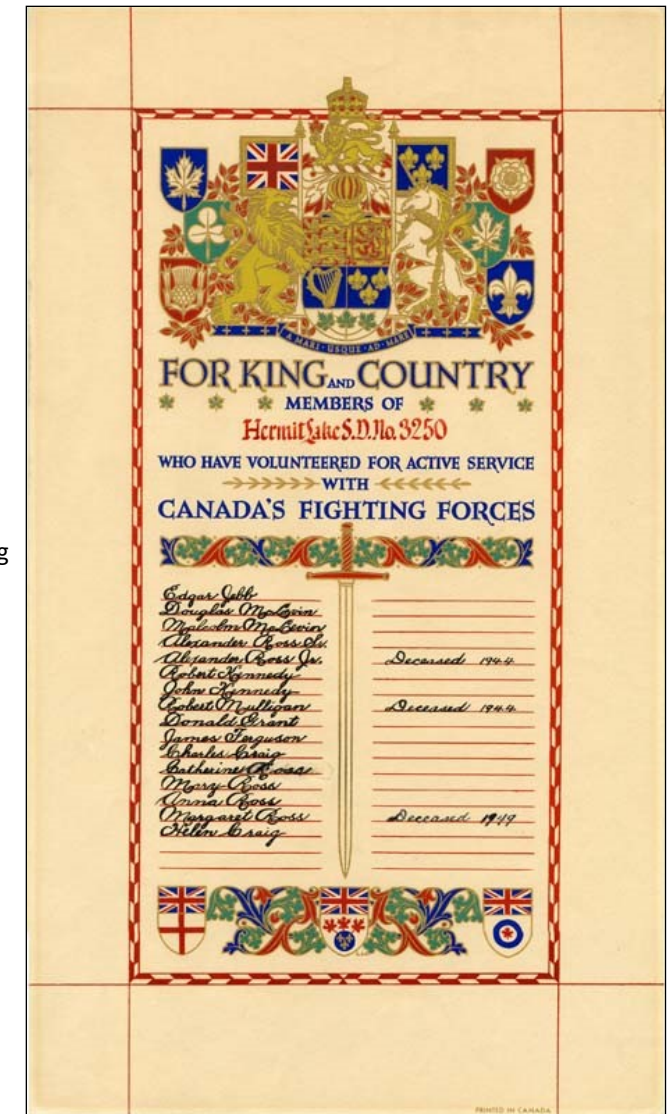 A MARI·USQUE·AD·MARE
FOR KING AND COUNTRY
MEMBERS OF
Hermit Lake S.D. No. 3250
WHO HAVE VOLUNTEERED FOR ACTIVE SERVICE
WITH
CANADA'S FIGHTING FORCES
g
Edgar Jebb
Douglas McLevin
Malcolm McLevin
Alexander Ross Sr.
Alexander Ross Jr. Deceased 1944
Robert Kennedy
John Kennedy
Robert Mulligan Deceased 1944
Donald Grant
James Ferguson
Charles Craig
Catherine Ross
Mary Ross
Anna Ross
Margaret Ross Deceased 1949
Helen Craig
PRINTED IN CANADA